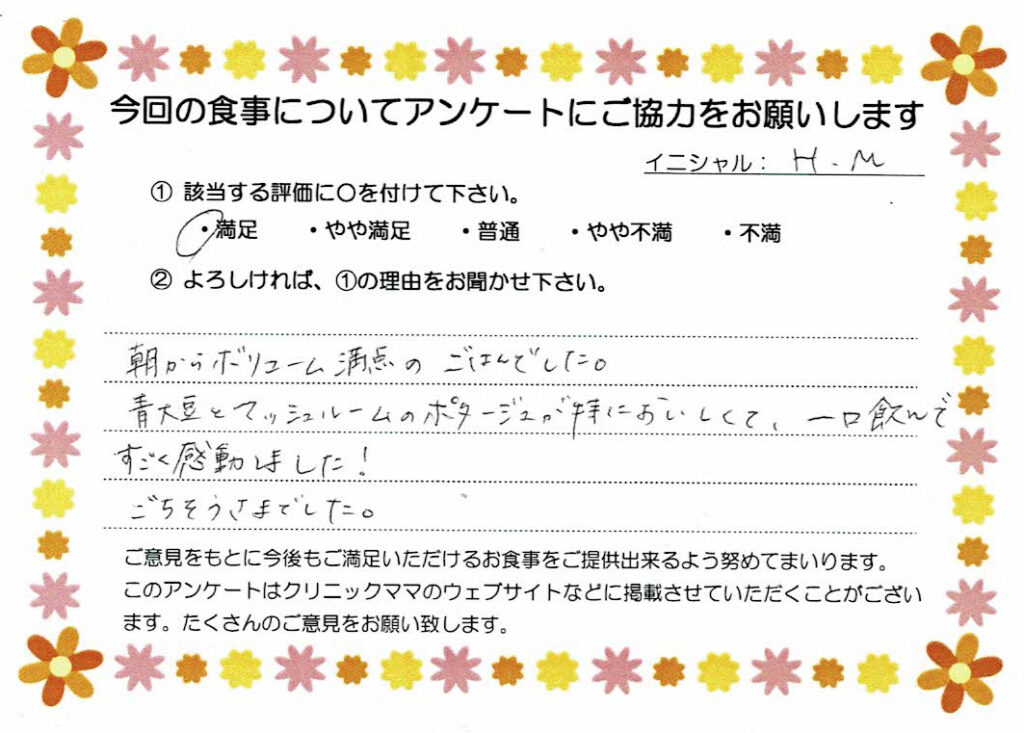 今回の食事についてアンケートにご協力をお願いします
イニシャル： H．M
① 該当する評価に〇を付けて下さい。
・満足 ・やや満足 ・普通 ・やや不満 ・不満
② よろしければ、①の理由をお聞かせ下さい。
朝からボリューム満点の ごはんでした。
青大豆とマッシュルームのポタージュが特においしくて、一口飲んで
すごく感動しました！
ごちそうさまでした。
ご意見をもとに今後もご満足いただけるお食事をご提供出来るよう努めてまいります。
このアンケートはクリニックママのウェブサイトなどに掲載させていただくことがござい
ます。たくさんのご意見をお願い致します。